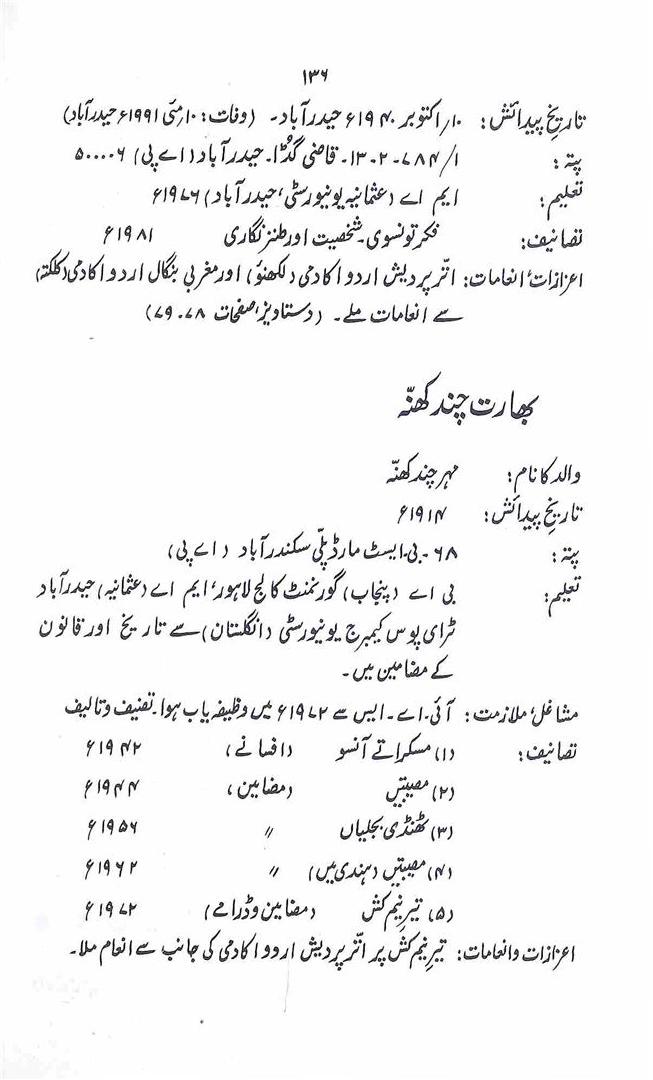 ۱۳۶
تاریخ پیدائش: ۱۰/اکتوبر ۱۹۴۰ء حیدرآباد۔ (وفات: ۱۰ مئی ۱۹۹۱ء حیدرآباد)
پتہ: ۱/۷۸۴-۲-۱۳ قاضی گڈا۔ حیدرآباد (اے پی) ۵۰۰۰۰۶
تعلیم: ایم اے (عثمانیہ یونیورسٹی، حیدرآباد) ۱۹۷۶ء
تصانیف: فکر تونسوی۔ شخصیت اور طنز نگاری ۱۹۸۱ء
اعزازات، انعامات: اتر پردیش اردو اکادمی (لکھنؤ) اور مغربی بنگال اردو اکادمی (کلکتہ)
سے انعامات ملے۔ (دستاویز، صفحات ۷۸-۷۹)
بھارت چند کھنّہ
والد کا نام: مہر چند کھنّہ
تاریخ پیدائش: ۱۹۱۴ء
پتہ: ۶۸-بی۔ ایسٹ مارڈ پلّی سکندرآباد (اے پی)
تعلیم: بی اے (پنجاب) گورنمنٹ کالج لاہور، ایم اے (عثمانیہ) حیدرآباد
ٹرائی پوس کیمبرج یونیورسٹی (انگلستان) سے تاریخ اور قانون
کے مضامین میں۔
مشاغل، ملازمت: آئی۔اے۔ایس سے ۱۹۷۲ء میں وظیفہ یاب ہوا۔ تصنیف و تالیف
تصانیف: (۱) مسکراتے آنسو (افسانے) ۱۹۴۲ء
(۲) مصیبتیں (مضامین) ۱۹۴۴ء
(۳) ٹھنڈی بجلیاں 〃 ۱۹۵۶ء
(۴) مصیبتیں (ہندی میں) 〃 ۱۹۶۲ء
(۵) تیرِ نیم کش (مضامین و ڈرامے) ۱۹۷۲ء
اعزازات و انعامات: تیرِ نیم کش پر اتر پردیش اردو اکادمی کی جانب سے انعام ملا۔